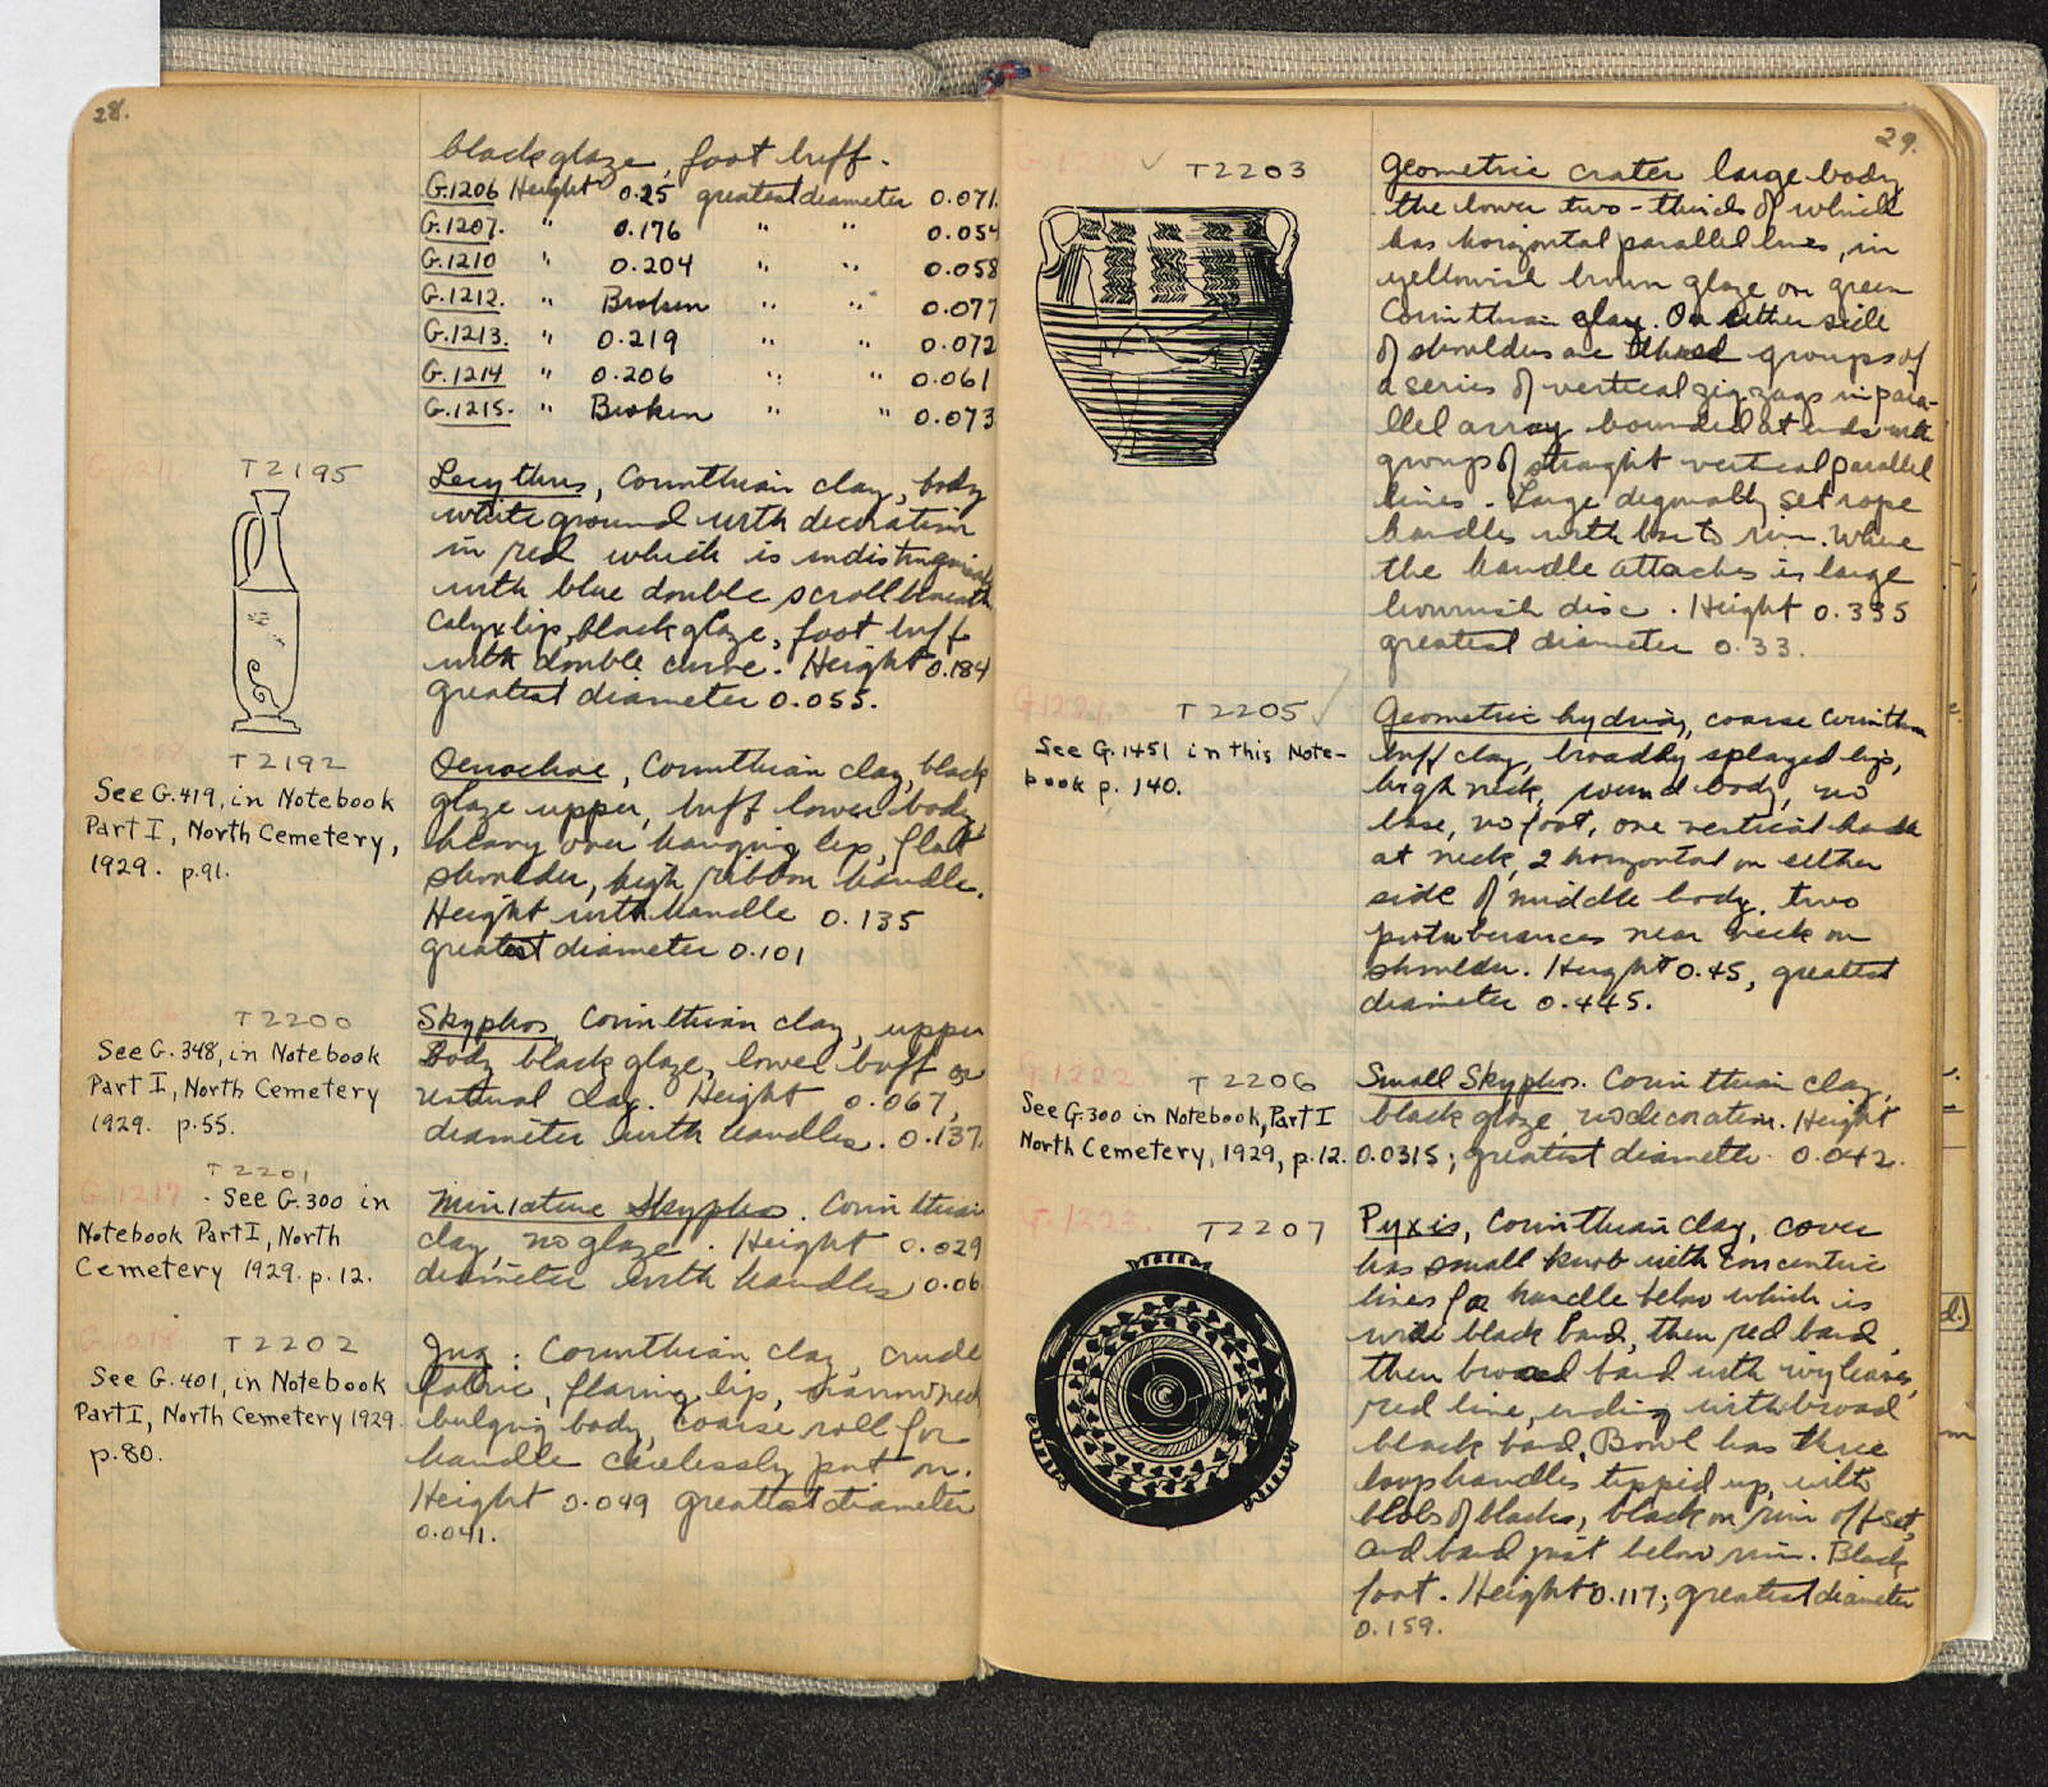 28.
black glaze, foot buff.
G.1206 Height 0.25 greatest diameter 0.071.
G.1207. " 0.176 " " 0.054
G.1210 " 0.204 " " 0.058
G.1212. " Broken " " 0.077
G.1213. " 0.219 " " 0.072
G.1214 " 0.206 " " 0.061
G.1215. " Broken " " 0.073
G.1211.
T2195
Lecythus, Corinthian clay, body
white ground with decoration
in red which is
with blue double scroll beneath
Calyx lip, black glaze, foot buff
with double curve. Height 0.184
greatest diameter 0.055.
T2192
See G.419, in Notebook
Part I, North Cemetery,
1929. p.91.
Oenochoe, Corinthian clay, black
glaze upper, buff lower body,
heavy over hanging lip, flat
shoulder, high ribbon handle.
Height with handle 0.135
greatest diameter 0.101
T2200
See G.348, in Notebook
Part I, North Cemetery
1929. p.55.
Skyphos, Corinthian clay, upper
Body black glaze, lower buff or
natural clay. Height 0.067,
diameter with handles. 0.137.
T2201
G.1217 . See G.300 in
Notebook Part I, North
Cemetery 1929. p.12.
Miniature Skyphos. Corinthian
clay, no glaze. Height 0.029
diameter with handles 0.06
T2202
See G.401, in Notebook
Part I, North Cemetery 1929
p.80.
Jug. Corinthian clay, crude
fabric, flaring lip, narrow neck
bulging body, coarse roll for
handle carelessly put on.
Height 0.049 greatest diameter
0.041.
29.
T2203
Geometric crater large body
the lower two-thirds of which
has horizontal parallel lines, in
yellowish brown glaze on green
Corinthian clay. On either side
of shoulders are three groups of
a series of vertical zigzags in para-
llel array bounded at ends with
group of straight vertical parallel
lines. Large set rope
handles with bar to rim. Where
the handle attaches is large
brownish disc. Height 0.335
greatest diameter 0.33.
G.1221.
T2205
See G.1451 in this Note-
book p. 140.
Geometric hydria, coarse Corinthian
buff clay, broadly splayed lip,
high neck, round body, no
base, no foot, one vertical handle
at neck, 2 horizontal on either
side of middle body. two
protuberances near neck on
shoulder. Height 0.45, greatest
diameter 0.445.
G.1222.
T2206
See G.300 in Notebook, Part I
North Cemetery, 1929, p.12.
Small Skyphos. Corinthian clay,
black glaze, no decoration. Height
0.0315; greatest diameter 0.042.
G.1223.
T2207
Pyxis, Corinthian clay, cover
has small knob with concentric
lines for handle below which is
wide black band, then red band,
then broad band with ivy leaves,
red line, ending with broad
black band. Bowl has three
loop handles tipped up, with
blobs of black, black on rim offset,
and band just below rim. Black
foot. Height 0.117; greatest diameter
0.159.